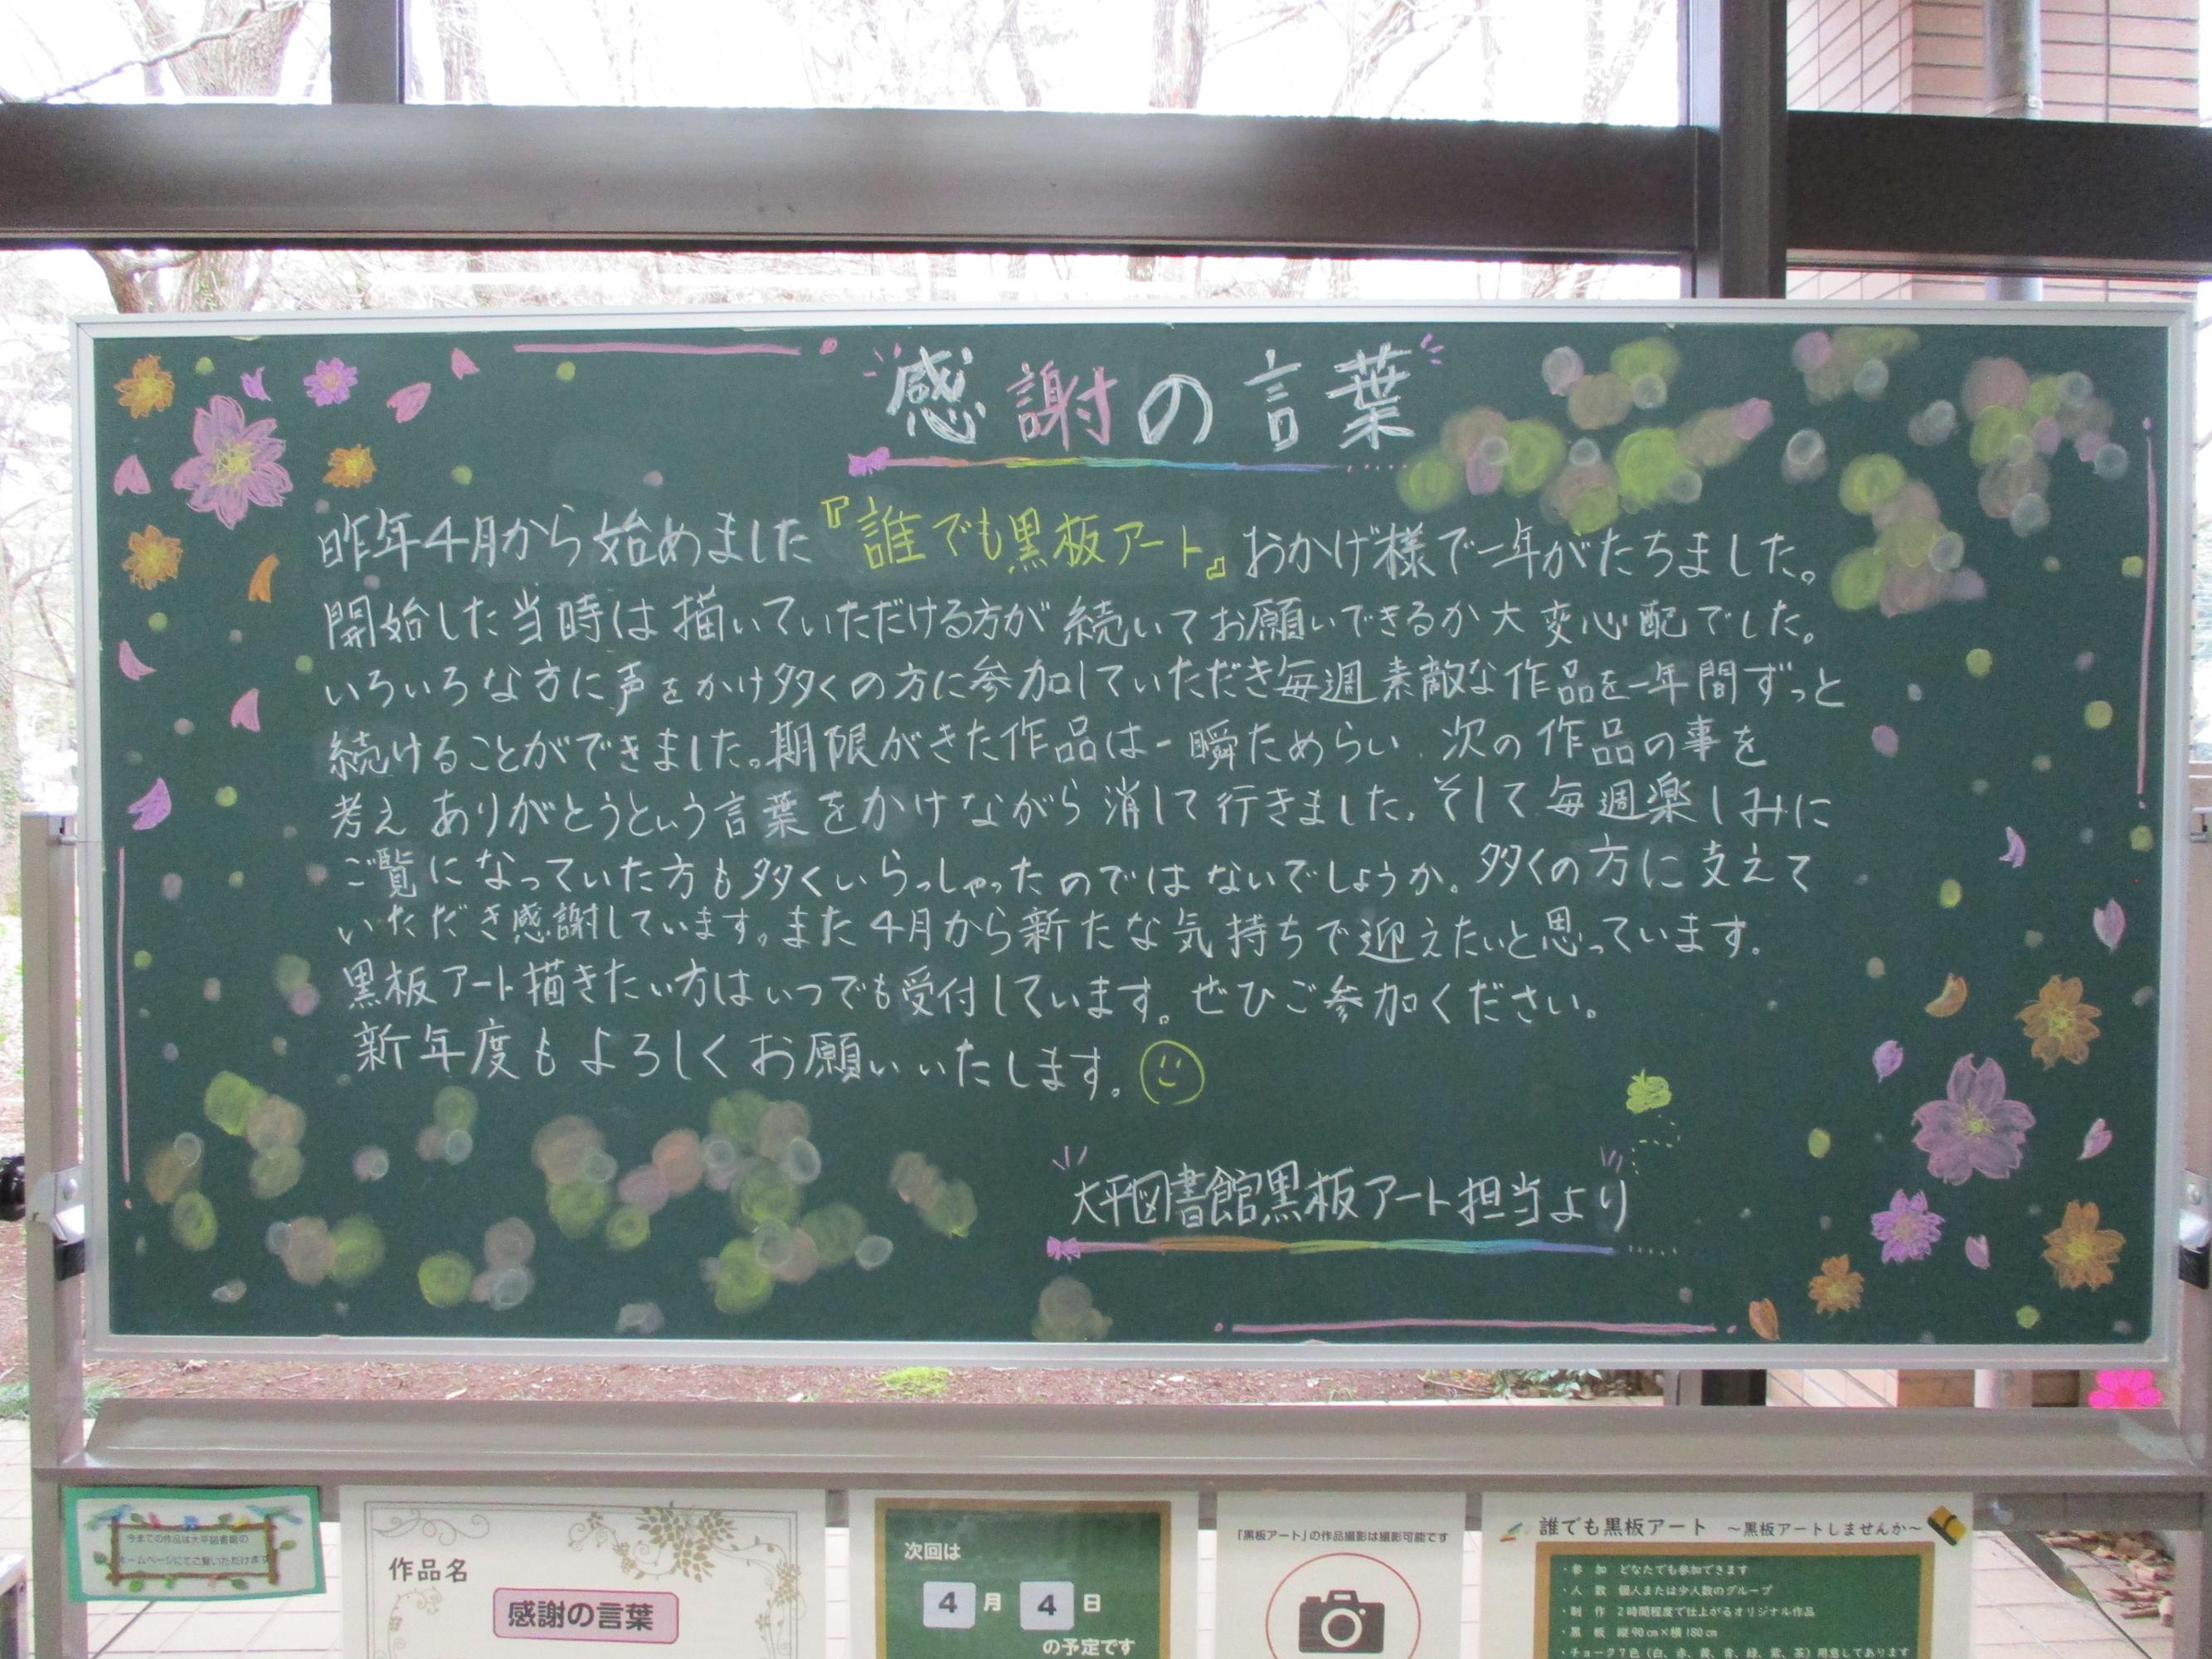 感謝の言葉
昨年4月から始めました『誰でも黒板アート』おかげ様で一年がたちました。
開始した当時は描いていただける方が続いてお願いできるか大変心配でした。
いろいろな方に声をかけ多くの方に参加していただき毎週素敵な作品を一年間ずっと
続けることができました。期限がきた作品は一瞬ためらい、次の作品の事を
考えありがとうという言葉をかけながら消して行きました。そして毎週楽しみに
ご覧になっていた方も多くいらっしゃったのではないでしょうか。多くの方に支えて
いただき感謝しています。また4月から新たな気持ちで迎えたいと思っています。
黒板アート描きたい方はいつでも受付しています。ぜひご参加ください。
新年度もよろしくお願いいたします。
大平図書館黒板アート担当より
今までの作品は大平図書館の
ホームページにてご覧いただけます
作品名
感謝の言葉
次回は
4月4日
の予定です
「黒板アート」の作品撮影は撮影可能です
誰でも黒板アート ～黒板アートしませんか～
・参 加 どなたでも参加できます
・人 数 個人または少人数のグループ
・制 作 2時間程度で仕上がるオリジナル作品
・黒 板 縦90㎝×横180㎝
・チョーク7色（白、赤、黄、青、緑、紫、茶）用意してあります